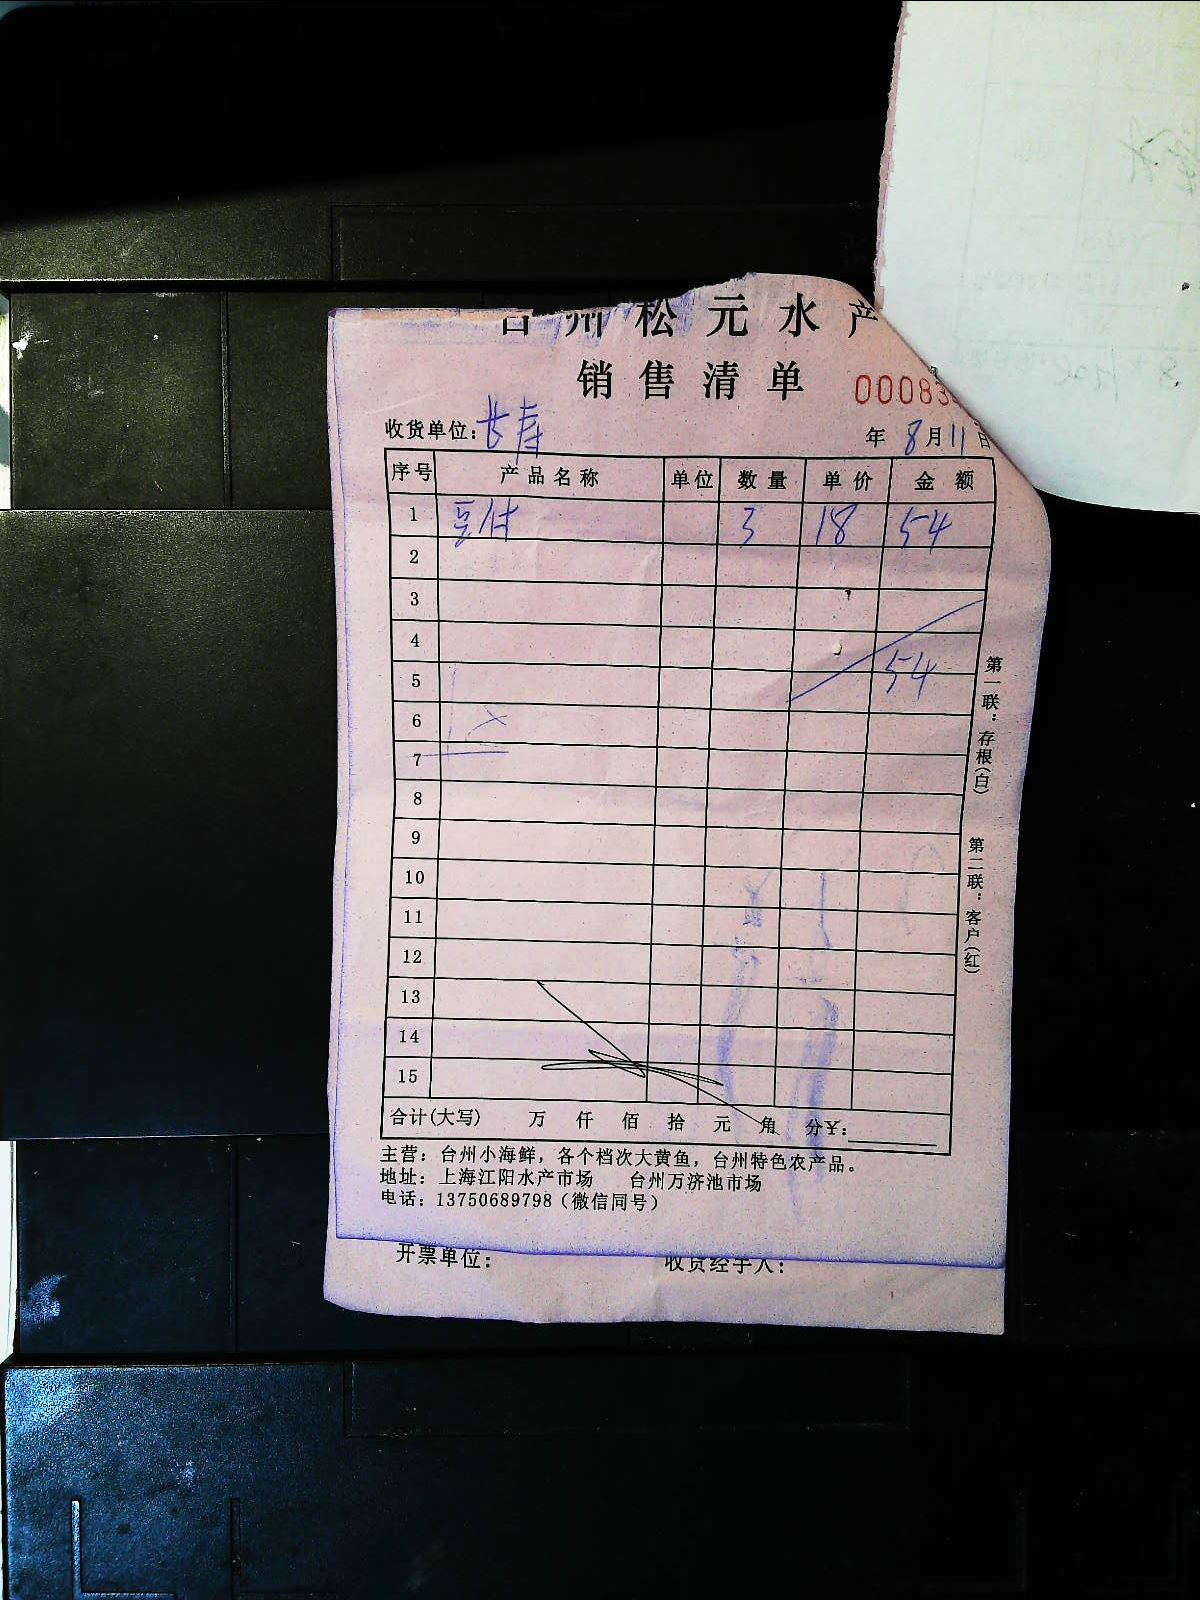 台州松元水产
销售清单 00083
收货单位: 长寿 年 8月11日
序号 产品名称 单位 数量 单价 金额
1 豆付 3 18 54
2
3
4
5 54
6
7
8
9
10
11
12
13
14
15
合计(大写) 万 仟 佰 拾 元 角 分¥:
主营: 台州小海鲜, 各个档次大黄鱼, 台州特色农产品。
地址: 上海江阳水产市场 台州万济池市场
电话: 13750689798 (微信同号)
开票单位: 收货经手人:
第一联: 存根(白)
第二联: 客户(红)